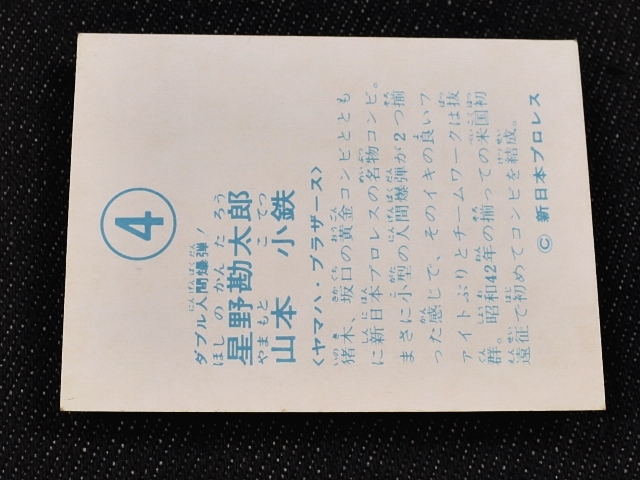 ④
ダブル人間爆弾！
星野勘太郎
山本小鉄
〈ヤマハ・ブラザース〉
猪木、坂口の黄金コンビととも
に新日本プロレスの名物コンビ。
まさに小型の人間爆弾が2つ揃
った感じで、そのイキの良いフ
ァイトぶりとチームワークは抜
群。昭和42年の揃っての米国初
遠征で初めてコンビを結成。
© 新日本プロレス